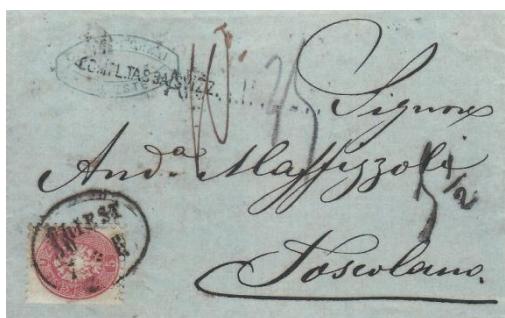 COMPL.TASSA SVIZZ.
10 25
Signor
And.ª Maffizzoli
5 1/2
TRIEST
Toscolano.